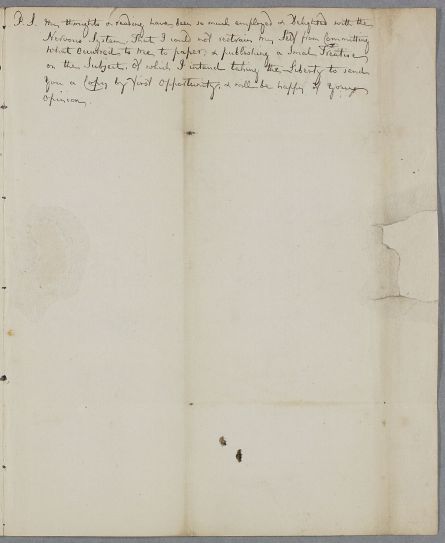 P. S. My thoughts & reading have been so much employed & Delighted with the
Nervous System, that I could not restrain my Self from Committing
what occurred to me to paper, & publishing a Small Treatise
on the Subject, of which I intend taking the Liberty to send
you a Copy by first opportunity, & will be happy of your
opinion.